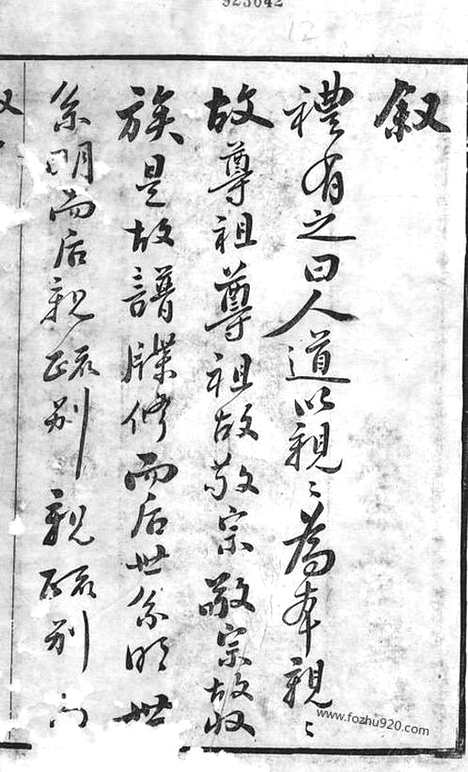 923642
12
叙
禮有之曰人道以親〻為本親〻
故尊祖尊祖故敬宗敬宗故收
族是故譜牒修而后世系明世
系明而后親疏别親疏别而
www.fozhu920.com